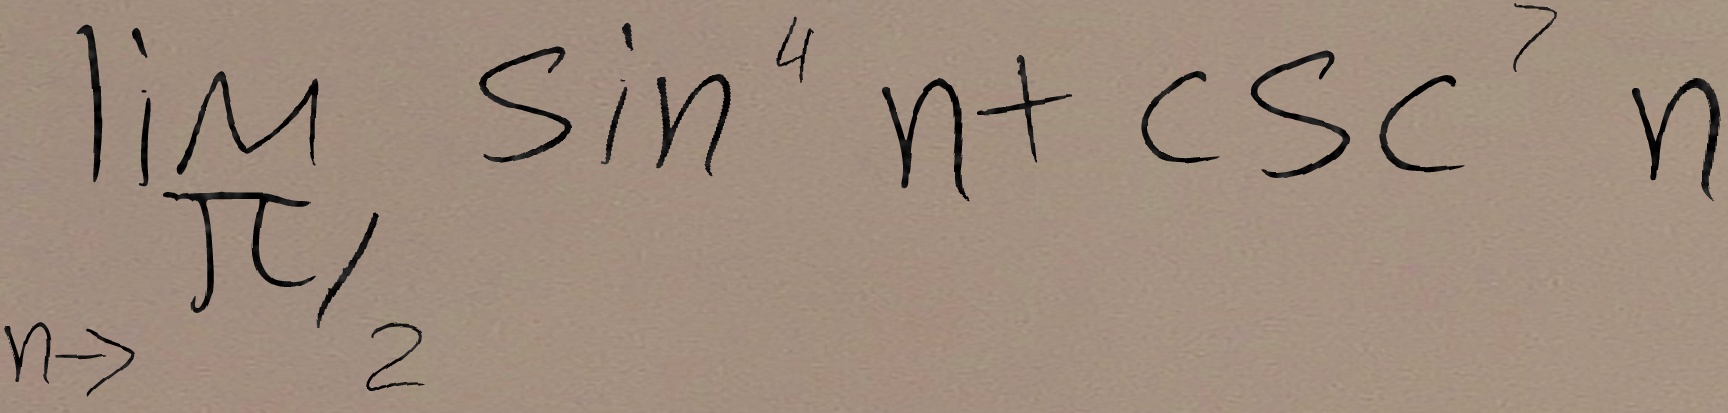 lim n→π/2 sin⁴ n + csc⁷ n